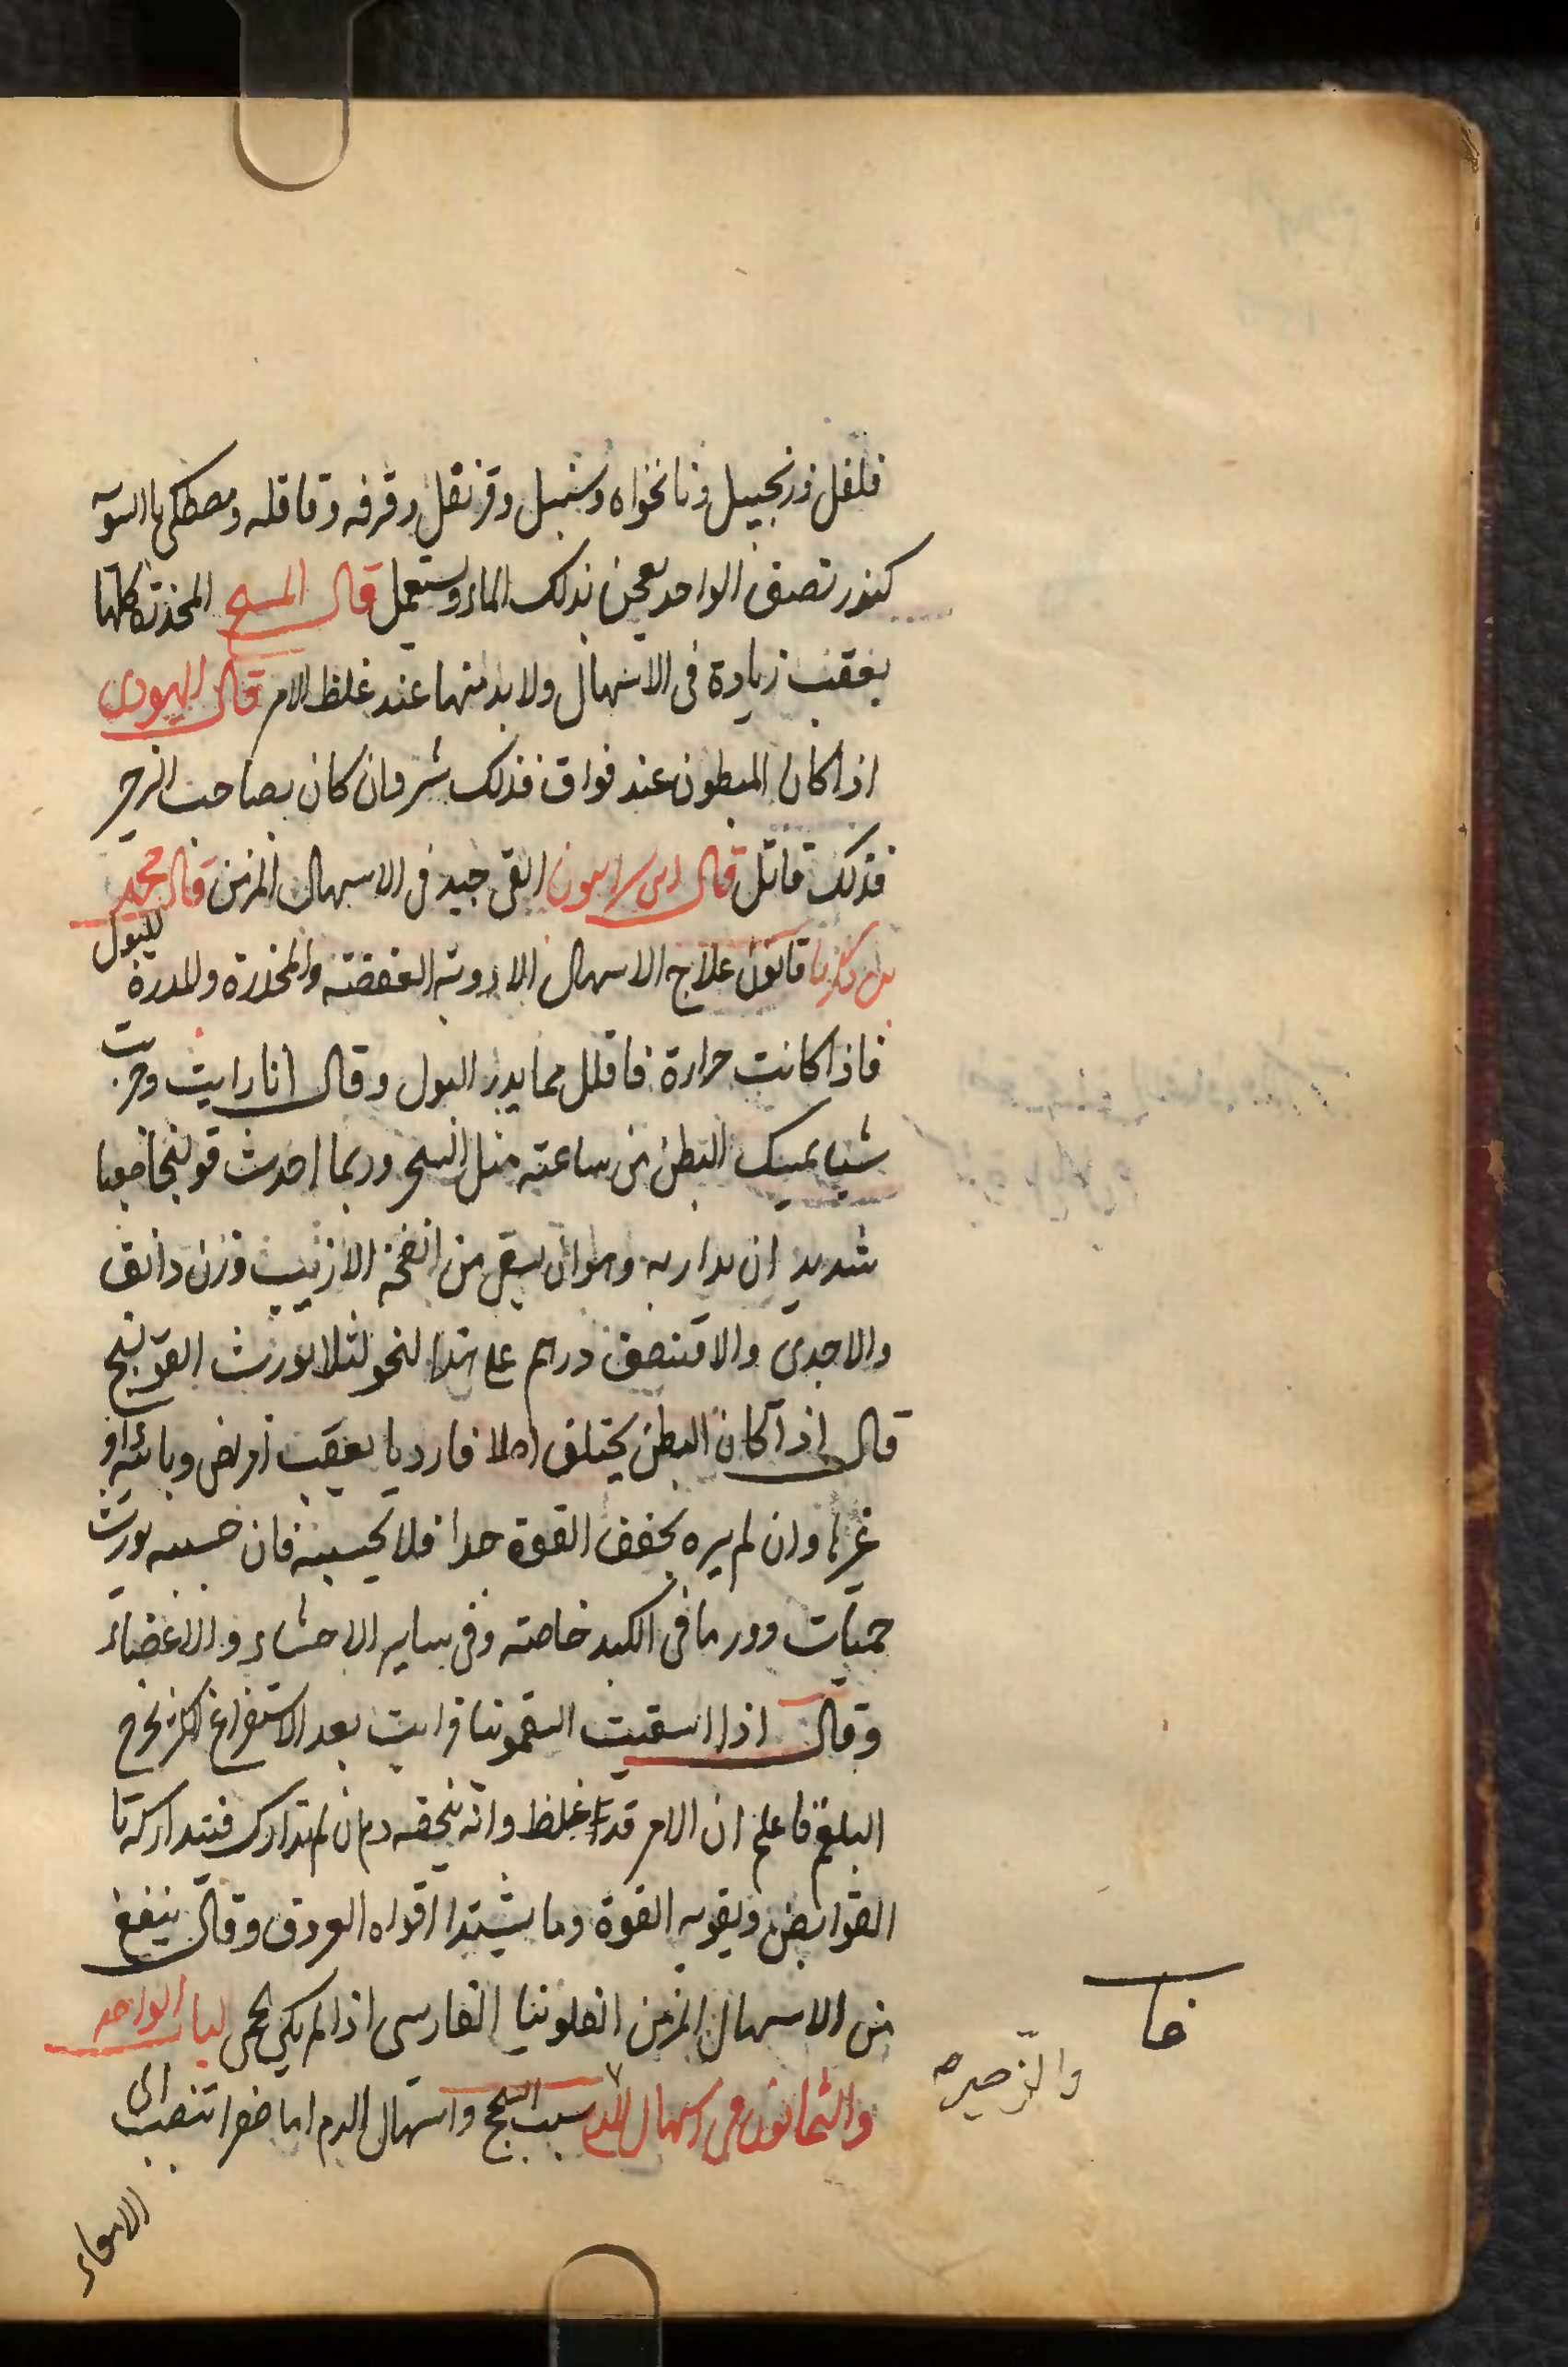 فلفل وزنجبيل ونانخواه وسنبل وقرنفل وقرفه وقاقله ومصطكى بالسويه
كندر نصف الواحد يعجن بذلك الماء ويستعمل قال المسيح المخذرة كلها
يعقب زيادة فى الاسهال ولا بد منها عند غلظ الامر قال اليهودى
اذا كان المبطون عند فواق فذلك شر وان كان بصاحب الزحير
فذلك قاتل قال ابن سرابيون القى جيد فى الاسهال المزمن قال محمد
بن زكريا قانون علاج الاسهال الادوية العفصة والمخدرة والمدرة للبول
فاذا كانت حرارة فاقلل مما يدر البول وقال انا رايت وجربت
شيا يمسك البطن من ساعته مثل السحر وربما احدث قولنجا صعبا
شديد ان يدار به وهو ان يسقى من انفحة الارنب وزن دانق
والاجدى والا فنصف درهم على هذا النحو لئلا يورث القولنج
قال اذا كان البطن يختلف اخلافا رديا بعقب امراض وبائية او
غيرها وان لم يره يخفف القوة جدا فلا تحبسه فان حبسه يورث
حميات وورما فى الكبد خاصة وفى ساير الاحشاء والاعضاء
وقال اذا اسقيت السقمونيا فرايت بعد الاستفراغ الكثير يخرج
البلغم فاعلم ان الامر قد غلظ وانه يلحقه دم ان لم تدارك فتداركه با
القوابض وبقوية القوة وما يشد افواه العروق وقال ينفع
من الاسهال المزمن الفلونيا الفارسى اذا لم يكن حمى الباب الواحد
والثمانون فى اسهال الدم سبب السحج واسهال الدم اما صفرا تنصب الى
الامعاء
والزحير صح